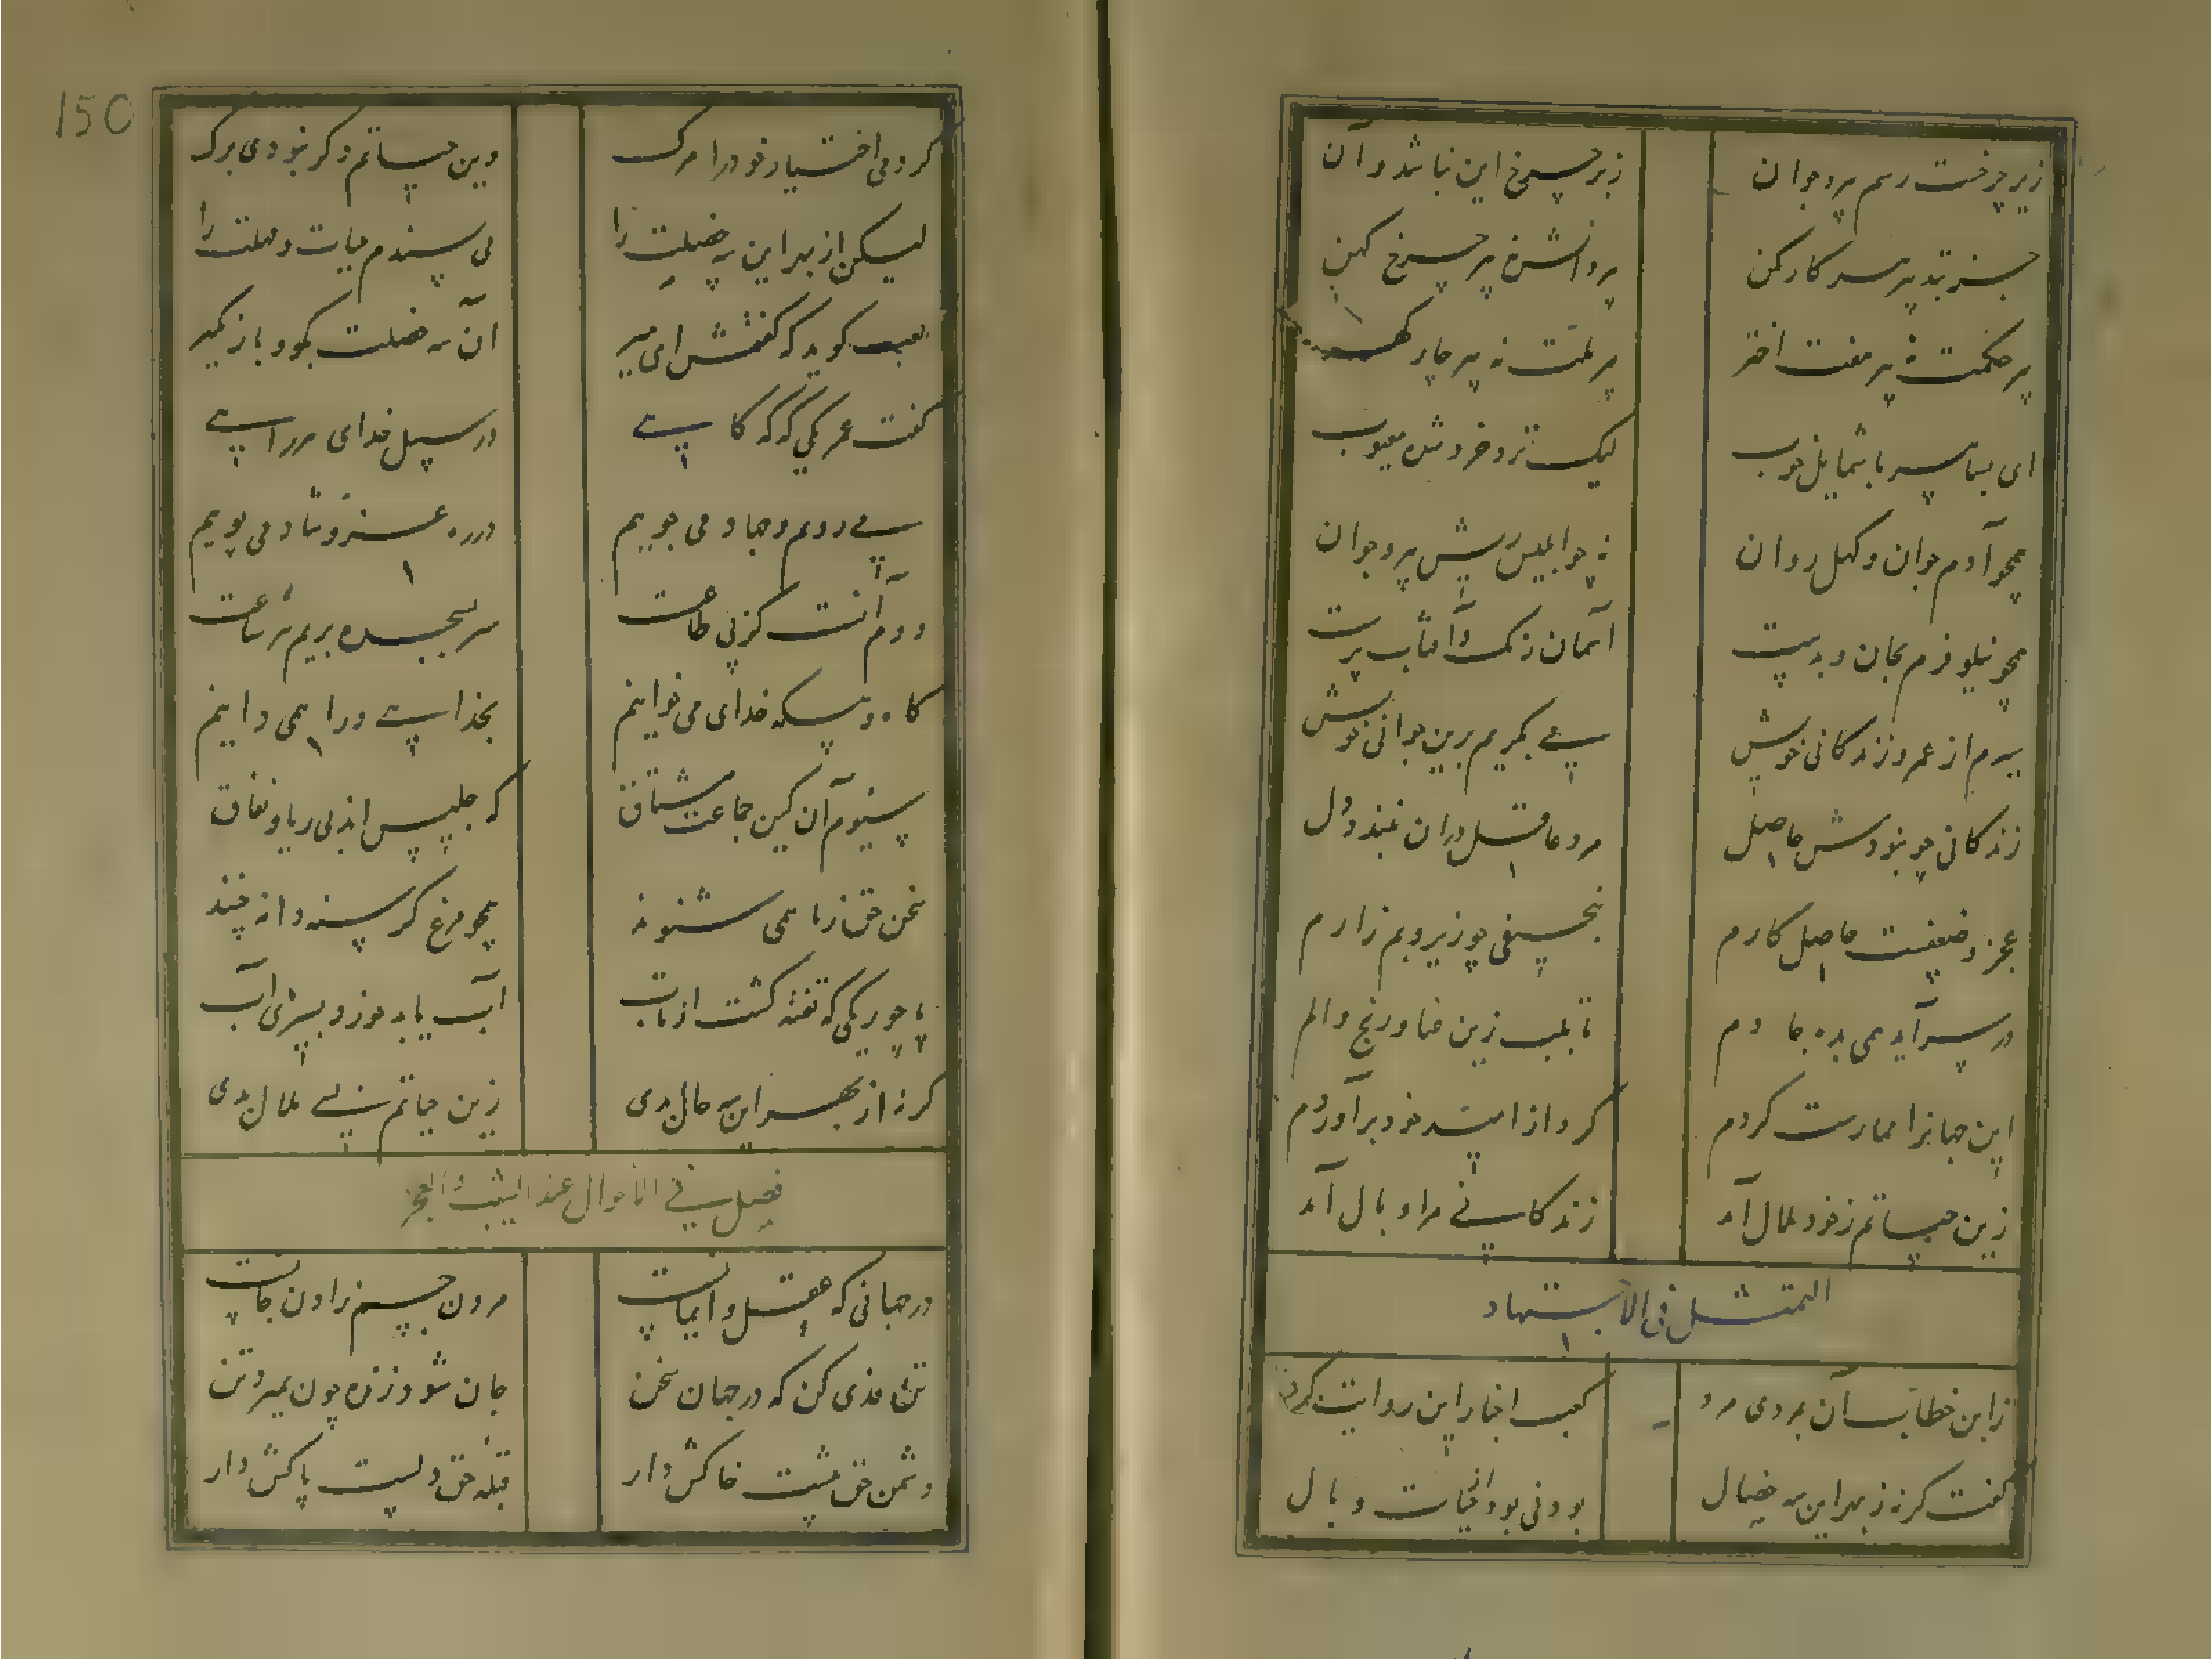 زیر چرخت رسم پیر و جوان
زبر چرخ این نباشد و آن
جز بتدبیر پیر کار مکن
پیر دانش نه پیر چرخ کهن
پیر حکمت نه پیر هفت اختر
پیر ملت نه پیر چار گهر
ای بسا پیر با شمایل خوب
لیک نزد خرد شده معیوب
همچو آدم جوان و کهل روان
نه چو ابلیس ریش پیر و جوان
همچو نیلوفرم بجان و بپوست
آسمان رنگ و آفتاب پرست
سیرم از عمر و زندگانی خویش
می بگریم برین جوانی خویش
زندگانی چو نبودش حاصل
مرد عاقل دران نبندد دل
عجز و ضعفست حاصل کارم
بنحیفی چو زیر و بم زارم
در سر آید همی بده جا دم
تا بلب زین عنا و رنج و الم
این جهانرا ممارست کردم
گرد از امید خود برآوردم
زین حیاتم ز خود ملال آمد
زندگانی مرا وبال آمد
التمثل فی الاستشهاد
زابن خطاب آن بمردی مرد
کعب احبار این روایت کرد
گفت گر نه ز بهر این سه خصال
بودنی بود از حیات وبال
150
کردمی اختیار خود را مرگ
وین حیاتم دگر نبودی برگ
لیکن از بهر این سه خصلت را
می پسندم حیات و مهلت را
کعب گوید که گفتمش ای میر
آن سه خصلت بگو و باز مگیر
گفت عمر یکی که گه گاهی
در سبیل خدای هر راهی
می رویم و جهاد می جوییم
در ره غزو شاد می پوییم
دوم آنست کز پی طاعت
سر بسجده بریم هر ساعت
گاه و بیگه خدای می خوانیم
بخدایی ورا همی دانیم
سیوم آن کین جماعت مشتاق
که جلیس اند بی ریا و نفاق
سخن حق ز ما همی شنوند
همچو مرغ گرسنه دانه چنند
یا چو ریگی که تفته گشت از تاب
آب یابد خورد بسیری آب
گر نه از بهر این سه حال بدی
زین حیاتم بسی ملال بدی
فصل فی الاحوال عند الشیب و العجز
در جهانی که عقل و ایمانست
مردن جسم زادن جانست
تن فدی کن که در جهان سخن
جان شود زنده چون بمیرد تن
دشمن حق تنست خاکش دار
قبله حق دلست پاکش دار